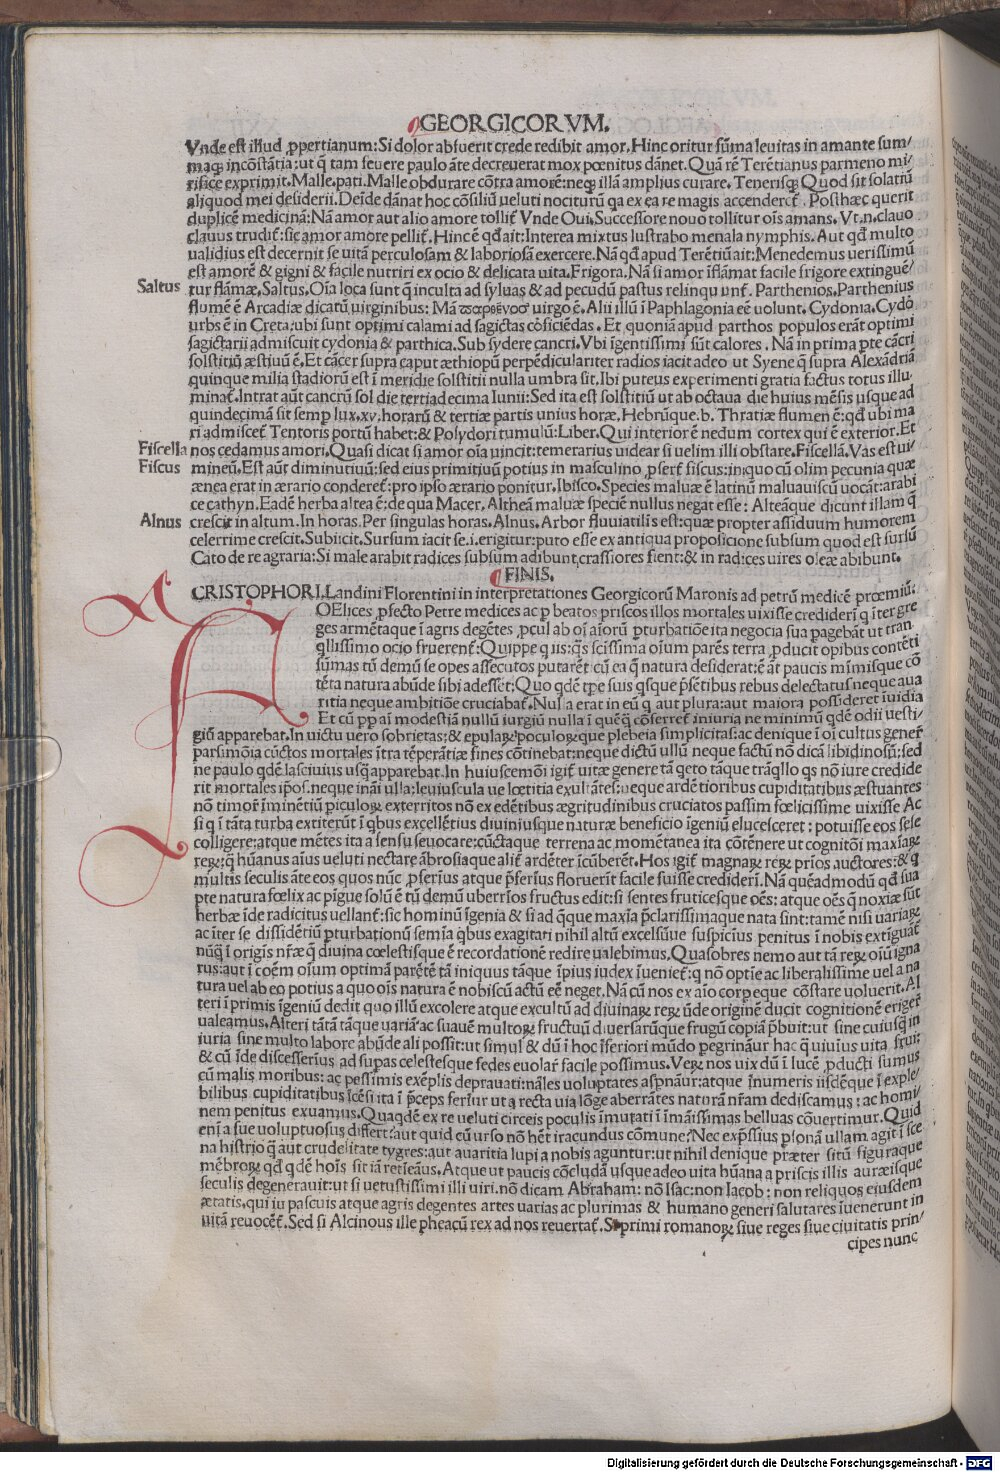 GEORGICORVM.
Vnde est illud ꝓpertianum: Si dolor abfuerit crede redibit amor. Hinc oritur sūma leuitas in amante sum/
maqꝫ incōstātia: ut q̄ tam seuere paulo āte decreuerat mox pœnitus dānet. Quā rē Terētianus parmeno mi/
rifice exprimit. Malle. pati. Malle obdurare cōtra amorē: neqꝫ illā amplius curare. Tenerisqꝫ Quod sit solatiū
aliquod mei desiderii. Deīde dānat hoc cōsiliū ueluti nociturū qa ex ea re magis accendercť. Posthæc querit
duplicē medicinā: Nā amor aut alio amore tolliť. Vnde Oui. Successore nouo tollitur oīs amans. Vt. n. clauo
clauus trudiť: sic amor amore pelliť. Hinc ē qđ ait: Interea mixtus lustrabo menala nymphis. Aut qđ multo
ualidius est decernit se uitā perculosam & laboriosā exercere. Nā qđ apud Terētiū ait: Menedemus uerissimū
est amorē & gigni & facile nutriri ex ocio & delicata uita. Frigora. Nā si amor īflāmat facile frigore extinguē/
Saltus tur flāmæ. Saltus. Oīa loca sunt q̄ inculta ad syluas & ad pecudū pastus relinquunť. Parthenios. Parthenius
flumē ē Arcadiæ dicatū uirginibus: Mā παρθένοσ uirgo ē. Alii illū ī Paphlagonia eē uolunt. Cydonia. Cydō
urbs ē in Creta: ubi sunt optimi calami ad sagictas cōficiēdas. Et quoniā apud parthos populos erāt optimi
sagictarii admiscuit cydonia & parthica. Sub sydere cancri. Vbi īgentissimi sūt calores. Nā in prima pte cācri
solstitiū æstiuū ē. Et cācer supra caput æthiopū perpēdiculariter radios iacit adeo ut Syene q̄ supra Alexādriā
quinque milia stadiorū est ī meridie solstitii nulla umbra sit. Ibi puteus experimenti gratia factus totus illu/
minať. Intrat aūt cancrū sol die tertiadecima Iunii: Sed ita est solstitiū ut ab octaua die huius mēsis usque ad
quindecimā sit semp lux. xv. horarū & tertiæ partis unius horæ. Hebrūque. b. Thratiæ flumen ē: qđ ubi ma
ri admisceť Tentoris portū habet: & Polydori tumulū: Liber. Qui interior ē nedum cortex qui ē exterior. Et
Fiscella nos cedamus amori. Quasi dicat si amor oīa uincit: temerarius uidear si uelim illi obstare. Fiscellā. Vas est ui/
Fiscus mineū. Est aūt diminutiuū: sed eius primitiuū potius in masculino ꝓferť fiscus: in quo cū olim pecunia quæ
ænea erat in ærario condereť: pro ipso ærario ponitur. Ibisco. Species maluæ ē latinū maluauiscū uocāt: arabi
ce cathyn. Eadē herba altea ē: de qua Macer. Altheā maluæ speciē nullus negat esse: Alteāque dicunt illam q̄
Alnus crescit in altum. In horas. Per singulas horas. Alnus. Arbor fluuiatilis est: quæ propter assiduum humorem
celerrime crescit. Subiicit. Sursum iacit se. i. erigitur: puto esse ex antiqua proposicione subsum quod est surfū
Cato de re agraria: Si male arabit radices subsum adibunt, crassiores fient: & in radices uires oleæ abibunt.
FINIS.
CRISTOPHORI. Landini Florentini in interpretationes Georgicorū Maronis ad petrū medicē prœmiū.
OElices ꝓfecto Petre medices ac p beatos priscos illos mortales uixisse crediderī q īter gre
ges armētaque ī agris degētes ꝓcul ab oī aīorū pturbatiōe ita negocia sua pagebāt ut tran
qllissimo ocio fruerenť: Quippe q iis: q̄s scissima oīum parēs terra ꝓducit opibus contēti
sūmas tū demū se opes assecutos putarēt: cū ea q̄ natura desiderat: eē āt paucis mīmisque cō
tēta natura abūde sibi adesset: Quo qdē tpe suis qsque pſētibus rebus delectatus neque aua
ritia neque ambitiōe cruciabať. Nulla erat in eū q aut plura: aut maiora possideret iuidia
Et cū pp aī modestiā nullū iurgiū nulla ī quēq̄ cōferreť iniuria ne minimū qdē odii uesti/
giū apparebat. In uictu uero sobrietas: & epulaꝝ poculoꝝque plebeia simplicitas: ac denique ī oī cultus generͬ
parsimōia cūctos mortales ītra tēperātiæ fines cōtinebat: neque dictū ullū neque factū nō dicā libidinosū: sed
ne paulo qdē lasciuius usq̄ apparebat. In huiuscemōi igiť uitæ genere tā qeto tāque trāqllo qs nō iure credide
rit mortales ipōs: neque ināi ulla: leuiuscula ue lœtitia exultātes: neque ardētioribus cupiditatibus æstuantes
nō timorͬ īminētiū piculoꝝ exterritos nō ex edētibus ægritudinibus cruciatos passim fœlicissime uixisse Ac
si q ī tāta turba extiterūt ī qbus excellētius diuiniusque naturæ beneficio īgeniū elucesceret: potuisse eos sese
colligere: atque mētes ita a sensu seuocare: cūctaque terrena ac momētanea ita cōtēnere ut cognitōi maxīaꝝ
reꝝ: q̄ hūanus aīus ueluti nectare ābrosiaque aliť ardēter īcūberēt. Hos igiť magnaꝝ reꝝ prīos auctores: & q̄
multis seculis āte eos quos nūc ꝓferīus atque pferīus floruerīt facile fuisse crediderī. Nā quēadmodū qđ sua
pte natura fœlix ac pīgue solū ē tū demū uberrīos fructus edit: si sentes fruticesque oēs: atque oēs q̄ noxiæ sūt
herbæ īde radicitus uellanť: sic hominū īgenia & si ad q̄que maxīa pclarissimaque nata sint: tamē nisi uariaꝝ
ac īter se dissidētiū pturbationū semīa qbus exagitari nihil altū excelsūue suspicīus penitus ī nobis extīguāt̄
nūq̄ ī origīs nr̄æ q̄ diuina cœlestisque ē recordationē redire ualebimus. Quasobres nemo aut tā reꝝ oīū igna
rus: aut ī coēm oīum optimā parētē tā iniquus tāque īpius iudex īuenieť: q nō optīe ac liberalissime uel a na
tura uel ab eo potius a quo oīs natura ē nobiscū actū eē neget. Nā cū nos ex aīo corpeque cōstare uoluerit. Al
teri ī primis īgeniū dedit quo illū excolere atque excultū ad diuinaꝝ reꝝ ūde originē ducit cognitionē erigerͬ
ualeamus. Alteri tātā tāque uariā ac suauē multoꝝ fructuū diuersarūque frugū copiā pbuit: ut sine cuiusq̄ in
iuria sine multo labore abūde ali possit: ut simul & dū ī hoc īferiori mūdo pegrināur hac q̄ uiuīus uita frui:
& cū īde discesserīus ad supas celestesque sedes euolarͬ facile possimus. Veꝝ nos uix dū ī lucē ꝓducti sumus
cū malis moribus: ac pessimis exēplis deprauati: nāles uoluptates aspnāur: atque īnumeris iisdēque ī exple/
bilibus cupiditatibus īcēsi ita ī pceps ferīur ut a recta uia lōge aberrātes naturā nr̄am dediscamus: ac homi/
nem penitus exuamus. Quaqdē ex re ueluti circeis poculis īmutati ī īmāissimas belluas cōuertimur. Quid
enī a sue uoluptuosus differt: aut quid cū urso nō hēt iracundus cōmune: Nec expssius psonā ullam agit ī sce
na histrio q̄ aut crudelitate tygres: aut auaritia lupi a nobis aguntur: ut nihil denique præter sitū figuraque
mēbroꝝ qđ qdē hoīs sit iā retīeāus. Atque ut paucis cōcludā usque adeo uita hūana a priscis illis auræisque
seculis degenerauit: ut si uetustissimi illi uiri. nō dicam Abraham: nō Isac: non Iacob: non reliquos eiusdem
ætatis. qui iu pascuis atque agris degentes artes uarias ac plurimas & humano generi salutares īuenerunt in
uitā reuoceť. Sed si Alcinous ille pheacū rex ad nos reuertať. Si primi romanoꝝ siue reges siue ciuitatis prin/
cipes nunc
Digitalisierung gefördert durch die Deutsche Forschungsgemeinschaft - DFG